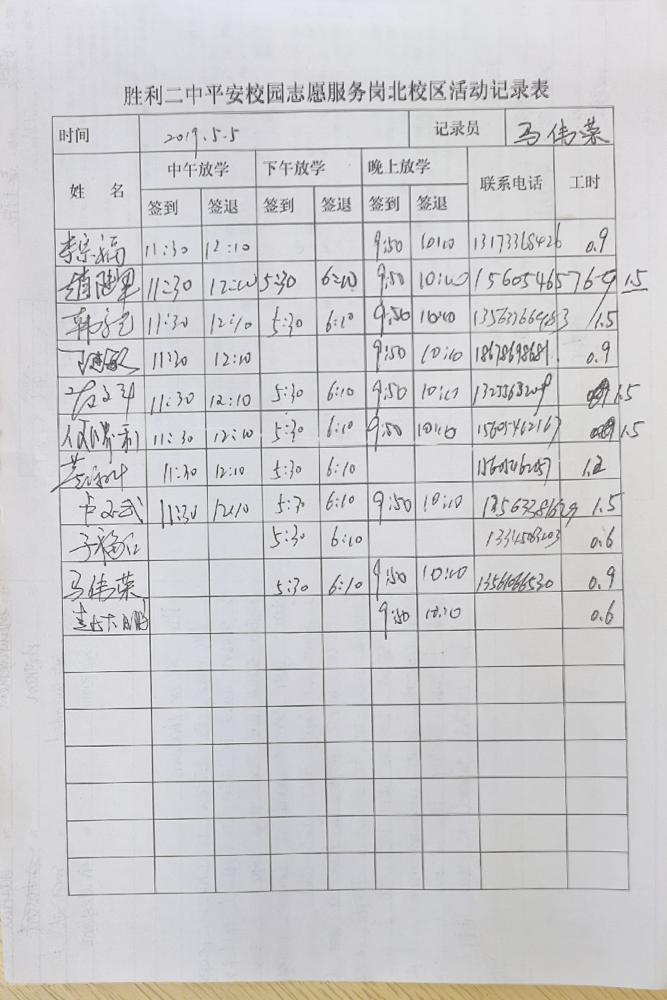 胜利二中平安校园志愿服务岗北校区活动记录表
时间 2019.5.5 记录员 马伟荣
姓 名 中午放学 下午放学 晚上放学 联系电话 工时
签到 签退 签到 签退 签到 签退
李宗福 11:30 12:10 9:50 10:10 13173368426 0.9
11:30 12:10 5:30 6:10 9:50 10:10 15605465769 1.5
韩 11:30 12:10 5:30 6:10 9:50 10:10 1.5
11:30 12:10 9:50 10:10 18678698681 0.9
11:30 12:10 5:30 6:10 9:50 10:10 1.5
11:30 12:10 5:30 6:10 9:50 10:10 15605462167 1.5
11:30 12:10 5:30 6:10 1.2
卞文武 11:30 12:10 5:30 6:10 9:50 10:10 1.5
5:30 6:10 0.6
马伟荣 5:30 6:10 9:50 10:10 13561066530 0.9
9:50 10:10 0.6